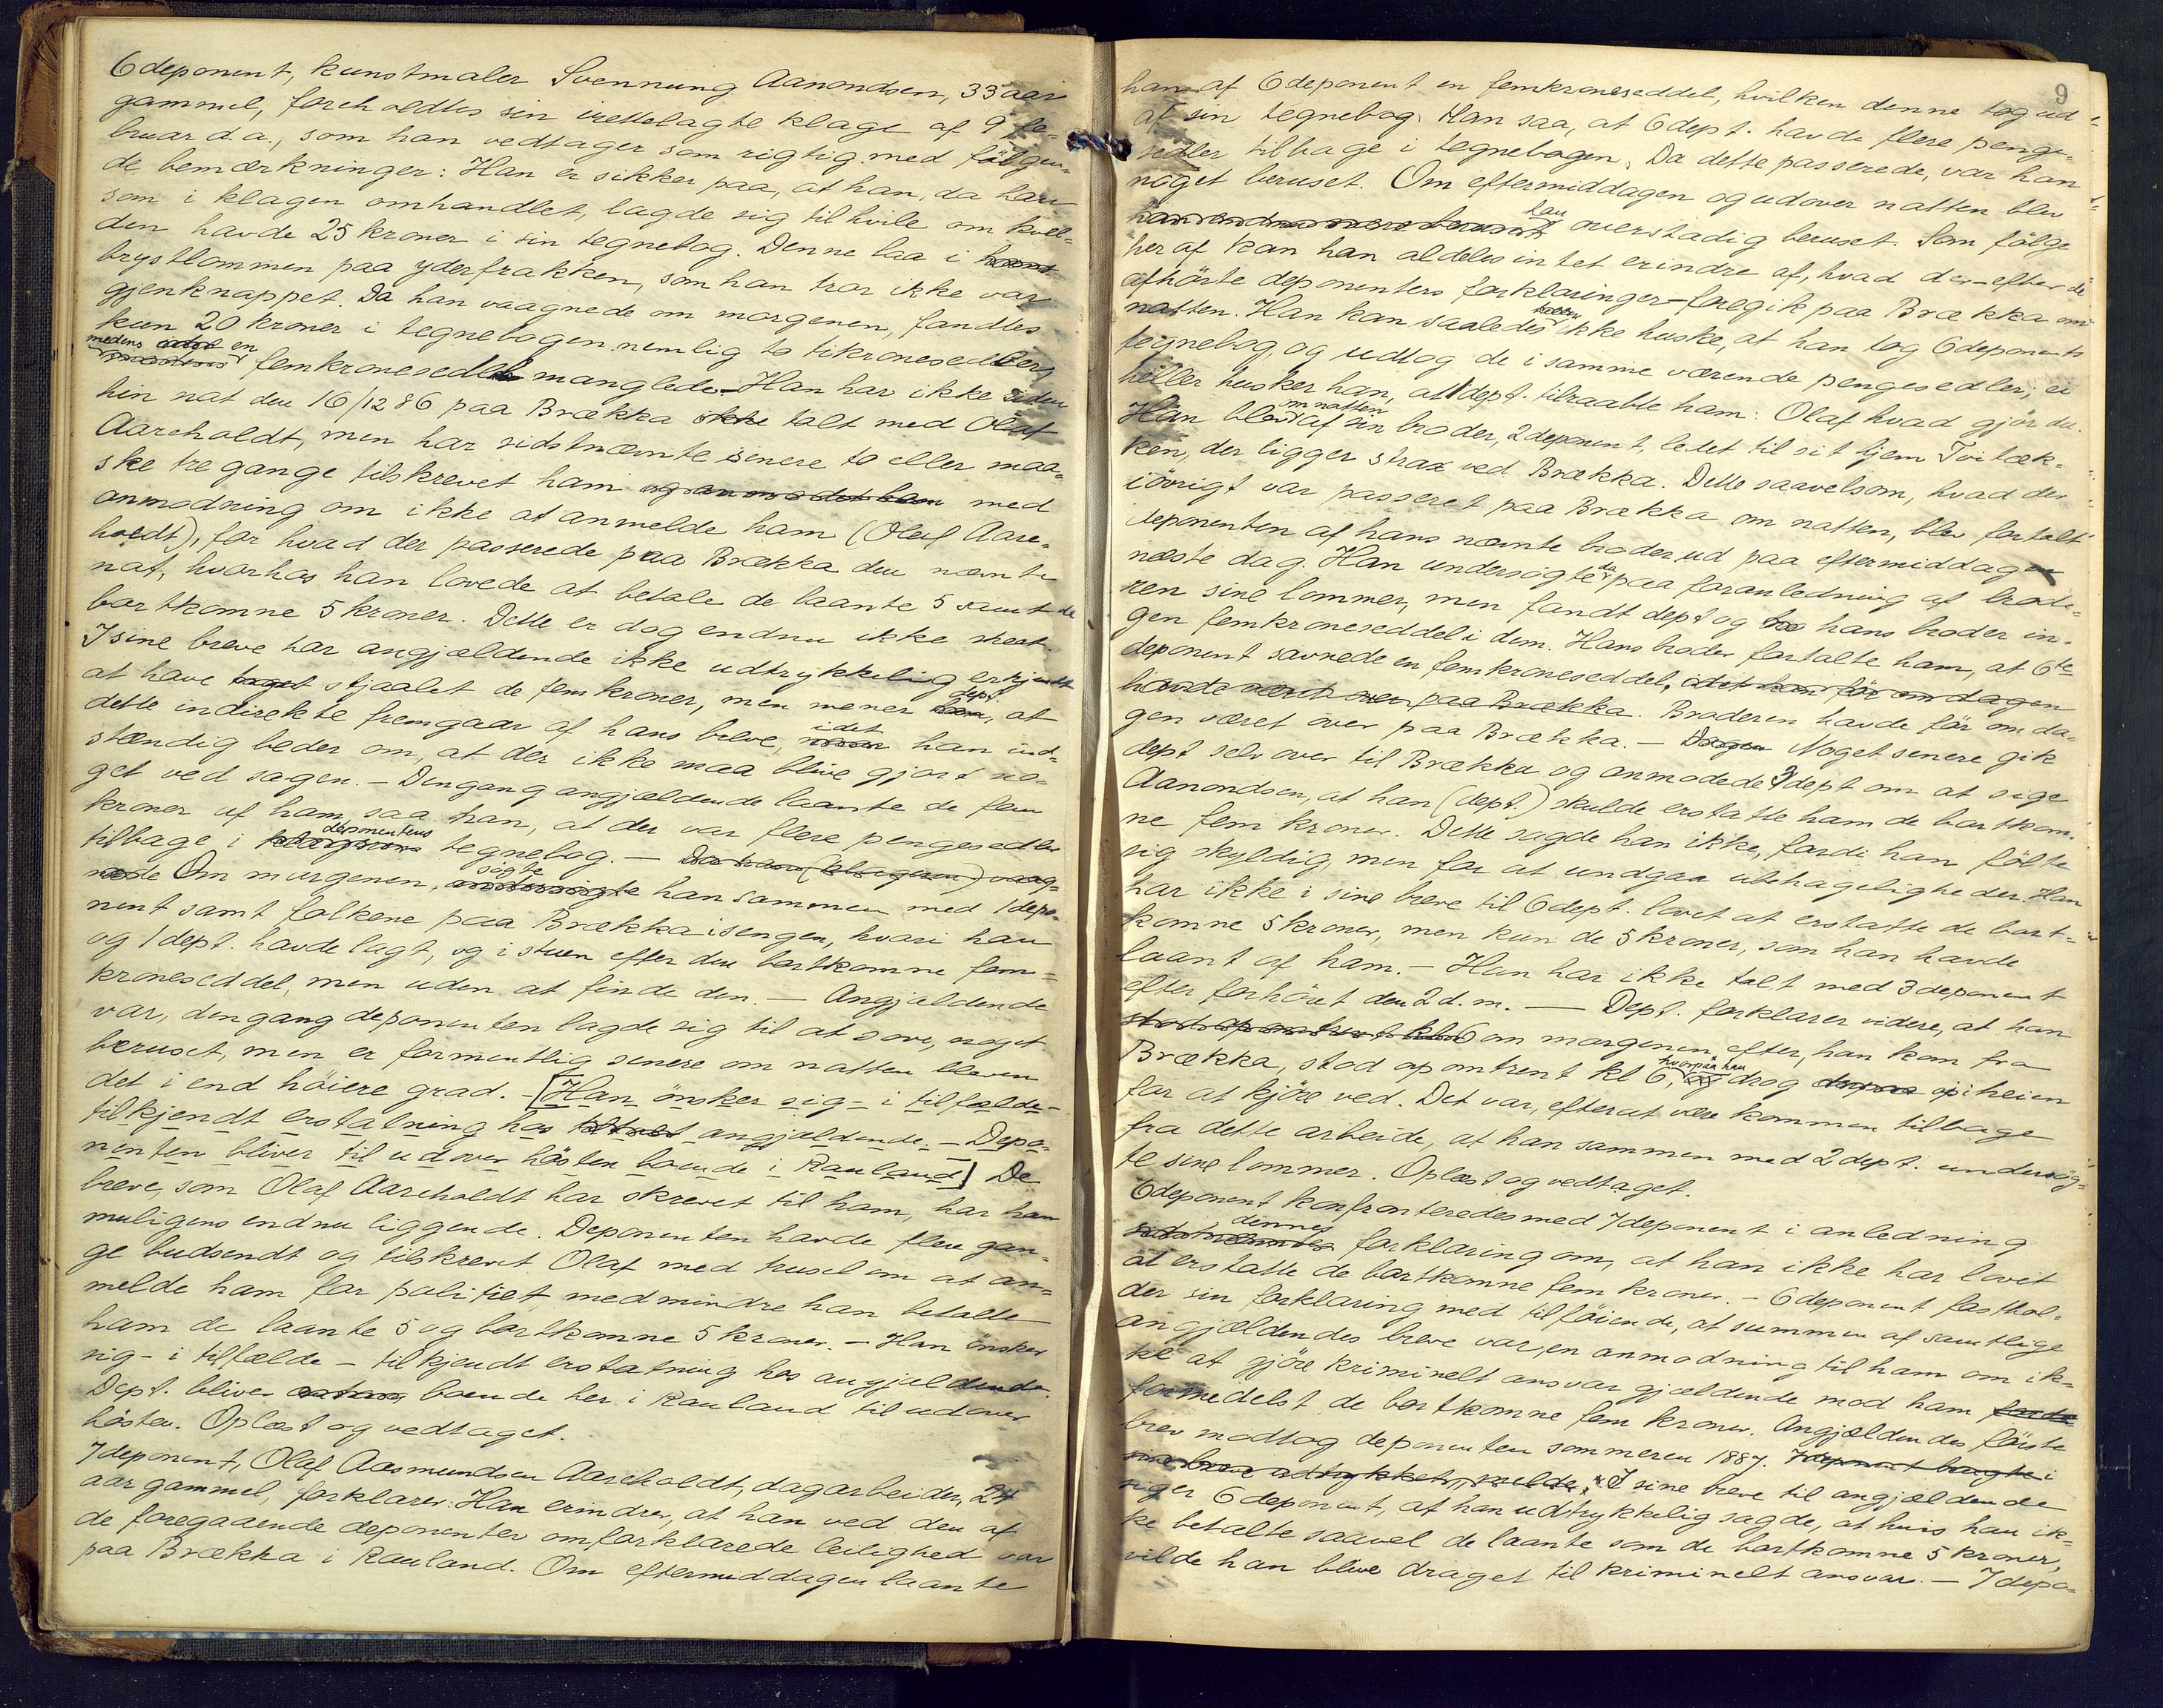 6 deponent, kunstmaler Svenning Aanondsen, 33 aar
gammel, foreholdtes sin irettelagte klage af 9 fe-
bruar d.a., som han vedtager som rigtig med følgen-
de bemærkninger: Han er sikker paa, at han, da han
som i klagen omhandlet, lagde sig til hvile om kvel-
den havde 25 kroner i sin tegnebog. Denne laa i hans
brystlommen paa yderfrakken, som han tror ikke var
gjenknappet. Da han vaagnede om morgenen, fandtes
kun 20 kroner i tegnebogen nemlig to tikronesedler,
medens en femkroneseddel manglede. Han har ikke siden
hin nat den 16/12 86 paa Brækka ikke talt med Olaf
Aareholdt, men har sidstnævnte senere to eller maa-
ske tre gange tilskrevet ham og anmodet ham med
anmodning om ikke at anmelde ham (Olaf Aare-
holdt), for hvad der passerede paa Brækka den nævnte
nat, hvorhos han lovede at betale de laante 5 samt de
bortkomne 5 kroner. Dette er dog endnu ikke skeet.
I sine breve har angjældende ikke udtrykkelig erkjendt
at have taget stjaalet de fem kroner, men mener dept, at
dette indirekte fremgaar af hans breve, idet han ind-
stændig beder om, at der ikke maa blive gjort no-
get ved sagen. – Dengang angjældende laante de fem
kroner af ham, saa han, at der var flere pengesedler
tilbage i klagerens deponentens tegnebog. – Da han (klageren) vaag-
nede Om morgenen, undersøgte søgte han sammen med 1 depo-
nent samt folkene paa Brækka i sengen, hvori han
og 1 dept. havde lagt, og i stuen efter den bortkomne fem-
kroneseddel, men uden at finde den. – Angjældende
var, dengang deponenten lagde sig til at sove, noget
beruset, men er formentlig senere om natten bleven
det i end høiere grad. – [Han ønsker sig – i tilfælde –
tilkjendt erstatning hos angjældende. – Depo-
nenten bliver til udover høsten boende i Rauland] De
breve, som Olaf Aareholdt har skrevet til ham, har han
muligens endnu liggende. Deponenten havde flere gan-
ge budsendt og tilskrevet Olaf med trusel om at an-
melde ham for politiet, medmindre han betalte
ham de laante 5 og bortkomne 5 kroner. – Han ønsker
sig – i tilfælde – tilkjendt erstatning hos angjældende.
Dept. bliver boende her i Rauland til udover
høsten. Oplæst og vedtaget.
7 deponent, Olaf Aasmundsen Aareholdt, dagarbeider, 24
aar gammel, forklarer: Han erindrer, at han ved den af
de foregaaende deponenter omforklarede leilighed var
paa Brækka i Rauland. Om eftermiddagen laante
9
han af 6 deponent en femkroneseddel, hvilken denne tog ud
af sin tegnebog. Han saa, at 6 dept. havde flere penge-
sedler tilbage i tegnebogen. Da dette passerede, var han
noget beruset. Om eftermiddagen og udover natten blev
han endnu mere beruset han overstadig beruset. Som følge
heraf kan han aldeles intet erindre af, hvad der – efter de
afhørte deponenters forklaringer – foregik paa Brækka om
natten. Han kan saaledes ikke huske, at han tog 6 deponents
tegnebog og udtog de i samme værende pengesedler; ei
heller husker han, at 1 dept. tilraabte ham: Olaf hvad gjør du.
Han blev om natten af sin broder, 2 deponent, ledet til sit hjem Tvitæk-
ken, der ligger strax ved Brækka. Dette saavelsom, hvad der
iøvrigt var passeret paa Brækka om natten, blev fortalt
deponenten af hans nævnte broder ud paa eftermiddagen
næste dag. Han undersøgte da paa foranledning af brode-
ren sine lommer, men fandt dept og hans broder in-
gen femkroneseddel i dem. Hans broder fortalte ham, at 6te
deponent savnede en femkroneseddel, idet han før om dagen
havde været over paa Brækka. Broderen havde før om da-
gen været over paa Brækka. – Dagen Noget senere gik
dept selv over til Brækka og anmodede 3 dept om at sige
Aanondsen, at han (dept.) skulde erstatte ham de bortkom-
ne fem kroner. Dette sagde han ikke, fordi han følte
sig skyldig, men for at undgaa ubehageligheder. Han
har ikke i sine breve til 6 dept. lovet at erstatte de bort-
komne 5 kroner, men kun de 5 kroner, som han havde
laant af ham. – Han har ikke talt med 3 deponent
efter forhøret den 2 d.m. – Dept. forklarer videre, at han
stod op omtrent kl 6 om morgenen efter, han kom fra
Brækka, stod op omtrent kl 6, hvorpaa han drog op i heien
for at kjøre ved. Det var, efter at være kommen tilbage
fra dette arbeide, at han sammen med 2 dept. undersøg-
te sine lommer. Oplæst og vedtaget.
6 deponent konfronteredes med 7 deponent i anledning
sidstnævntes dennes forklaring om, at han ikke har lovet
at erstatte de bortkomne fem kroner. – 6 deponent fasthol-
der sin forklaring med tilføiende, at summen af samtlige
angjældendes breve var, en anmodning til ham om ik-
ke at gjøre kriminelt ansvar gjældende mod ham
formedelst de bortkomne fem kroner. Angjældendes første
brev modtog deponenten sommeren 1887. 7 deponent brugte i
sine breve udtrykket, melde. I sine breve til angjældende
siger 6 deponent, at han udtrykkelig sagde, at hvis han ik-
ke betalte saavel de laante som de bortkomne 5 kroner,
vilde han blive draget til kriminelt ansvar. – 7 depo-